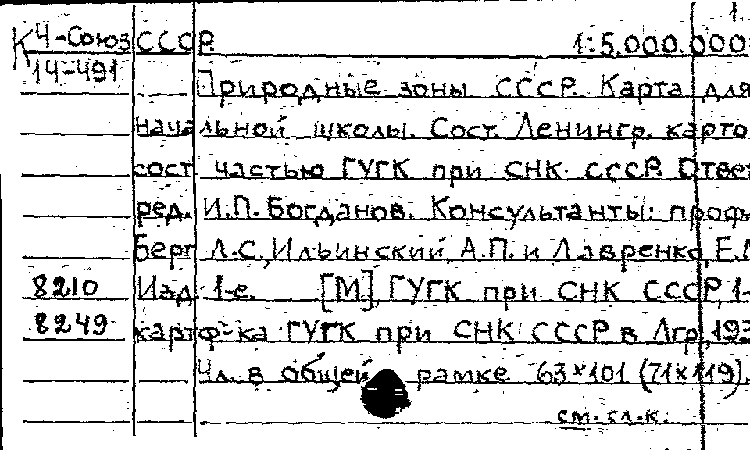 1.
К 4-Союз СССР. 1:5.000.000
14-491
Природные зоны СССР. Карта для
начальной школы. Сост. Ленингр. карто
сост. частью ГУГК при СНК СССР. Ответ
ред. И.П. Богданов. Консультанты: проф.
Берг Л.С., Ильинский А.П. и Лавренко, Е.
8210 Изд. 1-е. [М.], ГУГК при СНК СССР, 1-
8249 картоф-ка ГУГК при СНК СССР в Лгр, 193
4 л. в общей рамке 63×101 (71×119).
см. сл. к.